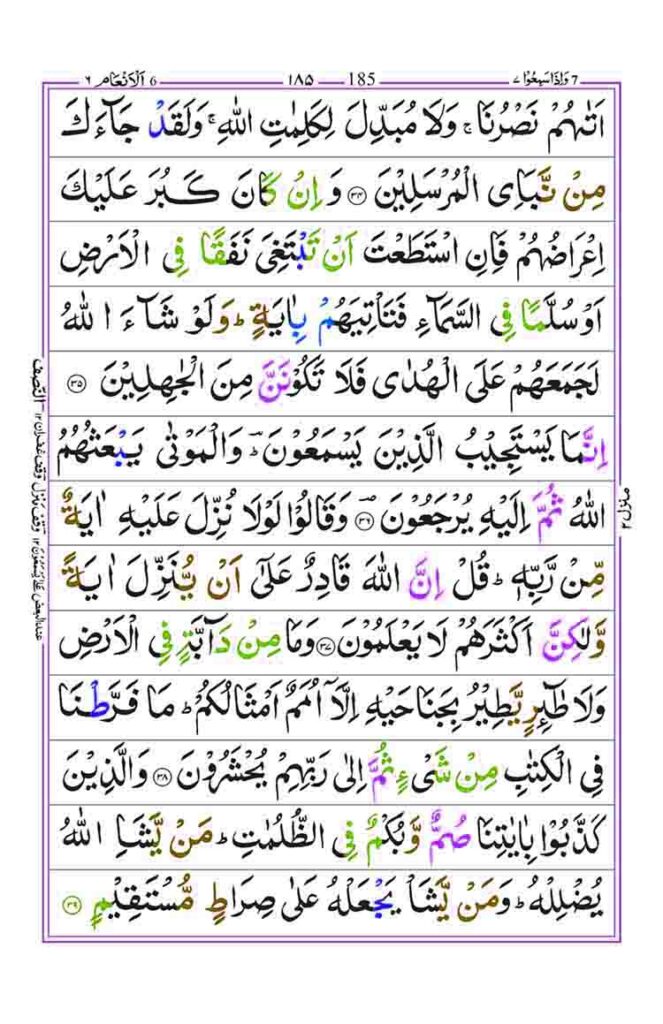 وَاِذَا سَمِعُوْا ٧ 7 185 ١٨٥ 6 اَلْاَنْعَام ٦
اَتٰىهُمْ نَصْرُنَا ۚ وَلَا مُبَدِّلَ لِكَلِمٰتِ اللّٰهِ ۚ وَلَقَدْ جَآءَكَ
مِنْ نَّبَاِى الْمُرْسَلِيْنَ ﴿۳۴﴾ وَاِنْ كَانَ كَبُرَ عَلَيْكَ
اِعْرَاضُهُمْ فَاِنِ اسْتَطَعْتَ اَنْ تَبْتَغِىَ نَفَقًا فِى الْاَرْضِ
اَوْ سُلَّمًا فِى السَّمَآءِ فَتَاْتِيَهُمْ بِاٰيَةٍ ؕ وَلَوْ شَآءَ اللّٰهُ
لَجَمَعَهُمْ عَلَى الْهُدٰى فَلَا تَكُوْنَنَّ مِنَ الْجٰهِلِيْنَ ﴿۳۵﴾
اِنَّمَا يَسْتَجِيْبُ الَّذِيْنَ يَسْمَعُوْنَ ؕ وَالْمَوْتٰى يَبْعَثُهُمُ
اللّٰهُ ثُمَّ اِلَيْهِ يُرْجَعُوْنَ ﴿۳۶﴾ وَقَالُوْا لَوْلَا نُزِّلَ عَلَيْهِ اٰيَةٌ
مِّنْ رَّبِّهٖ ؕ قُلْ اِنَّ اللّٰهَ قَادِرٌ عَلٰٓى اَنْ يُّنَزِّلَ اٰيَةً
وَّلٰكِنَّ اَكْثَرَهُمْ لَا يَعْلَمُوْنَ ﴿۳۷﴾ وَمَا مِنْ دَآبَّةٍ فِى الْاَرْضِ
وَلَا طٰٓئِرٍ يَّطِيْرُ بِجَنَاحَيْهِ اِلَّاۤ اُمَمٌ اَمْثَالُكُمْ ؕ مَا فَرَّطْنَا
فِى الْكِتٰبِ مِنْ شَىْءٍ ثُمَّ اِلٰى رَبِّهِمْ يُحْشَرُوْنَ ﴿۳۸﴾ وَالَّذِيْنَ
كَذَّبُوْا بِاٰيٰتِنَا صُمٌّ وَّبُكْمٌ فِى الظُّلُمٰتِ ؕ مَنْ يَّشَاِ اللّٰهُ
يُضْلِلْهُ ؕ وَمَنْ يَّشَاْ يَجْعَلْهُ عَلٰى صِرَاطٍ مُّسْتَقِيْمٍ ﴿۳۹﴾
منزل ۲
النصف